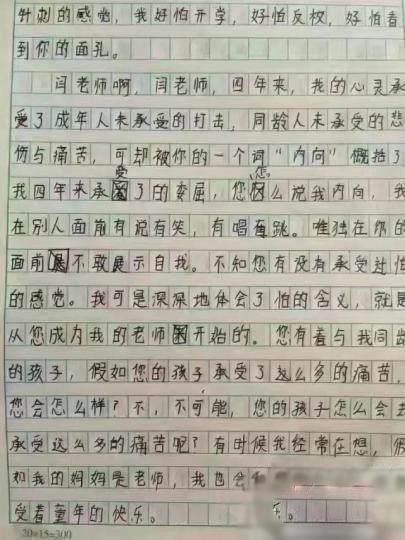 针刺的感觉，我好怕开学，好怕反校，好怕看
到你的面孔。
闫老师啊，闫老师，四年来，我的心灵承
受了成年人未承受的打击，同龄人未承受的悲
伤与痛苦，可却被你的一个词“内向”概括了
我四年来承受了的委屈，您怎么说我内向，我
在别人面前有说有笑，有唱有跳。唯独在你的
面前不敢展示自我。不知您有没有承受过怕
的感觉。我可是深深地体会了怕的含义，就是
从您成为我的老师开始的。您有着与我同龄
的孩子，假如您的孩子承受了这么多的痛苦，
您会怎么样？不，不可能，您的孩子怎么会去
承受这么多的痛苦呢？有时候我经常在想，假
如我的妈妈是老师，我也会
受着童年的快乐。 乐。
20×15=300